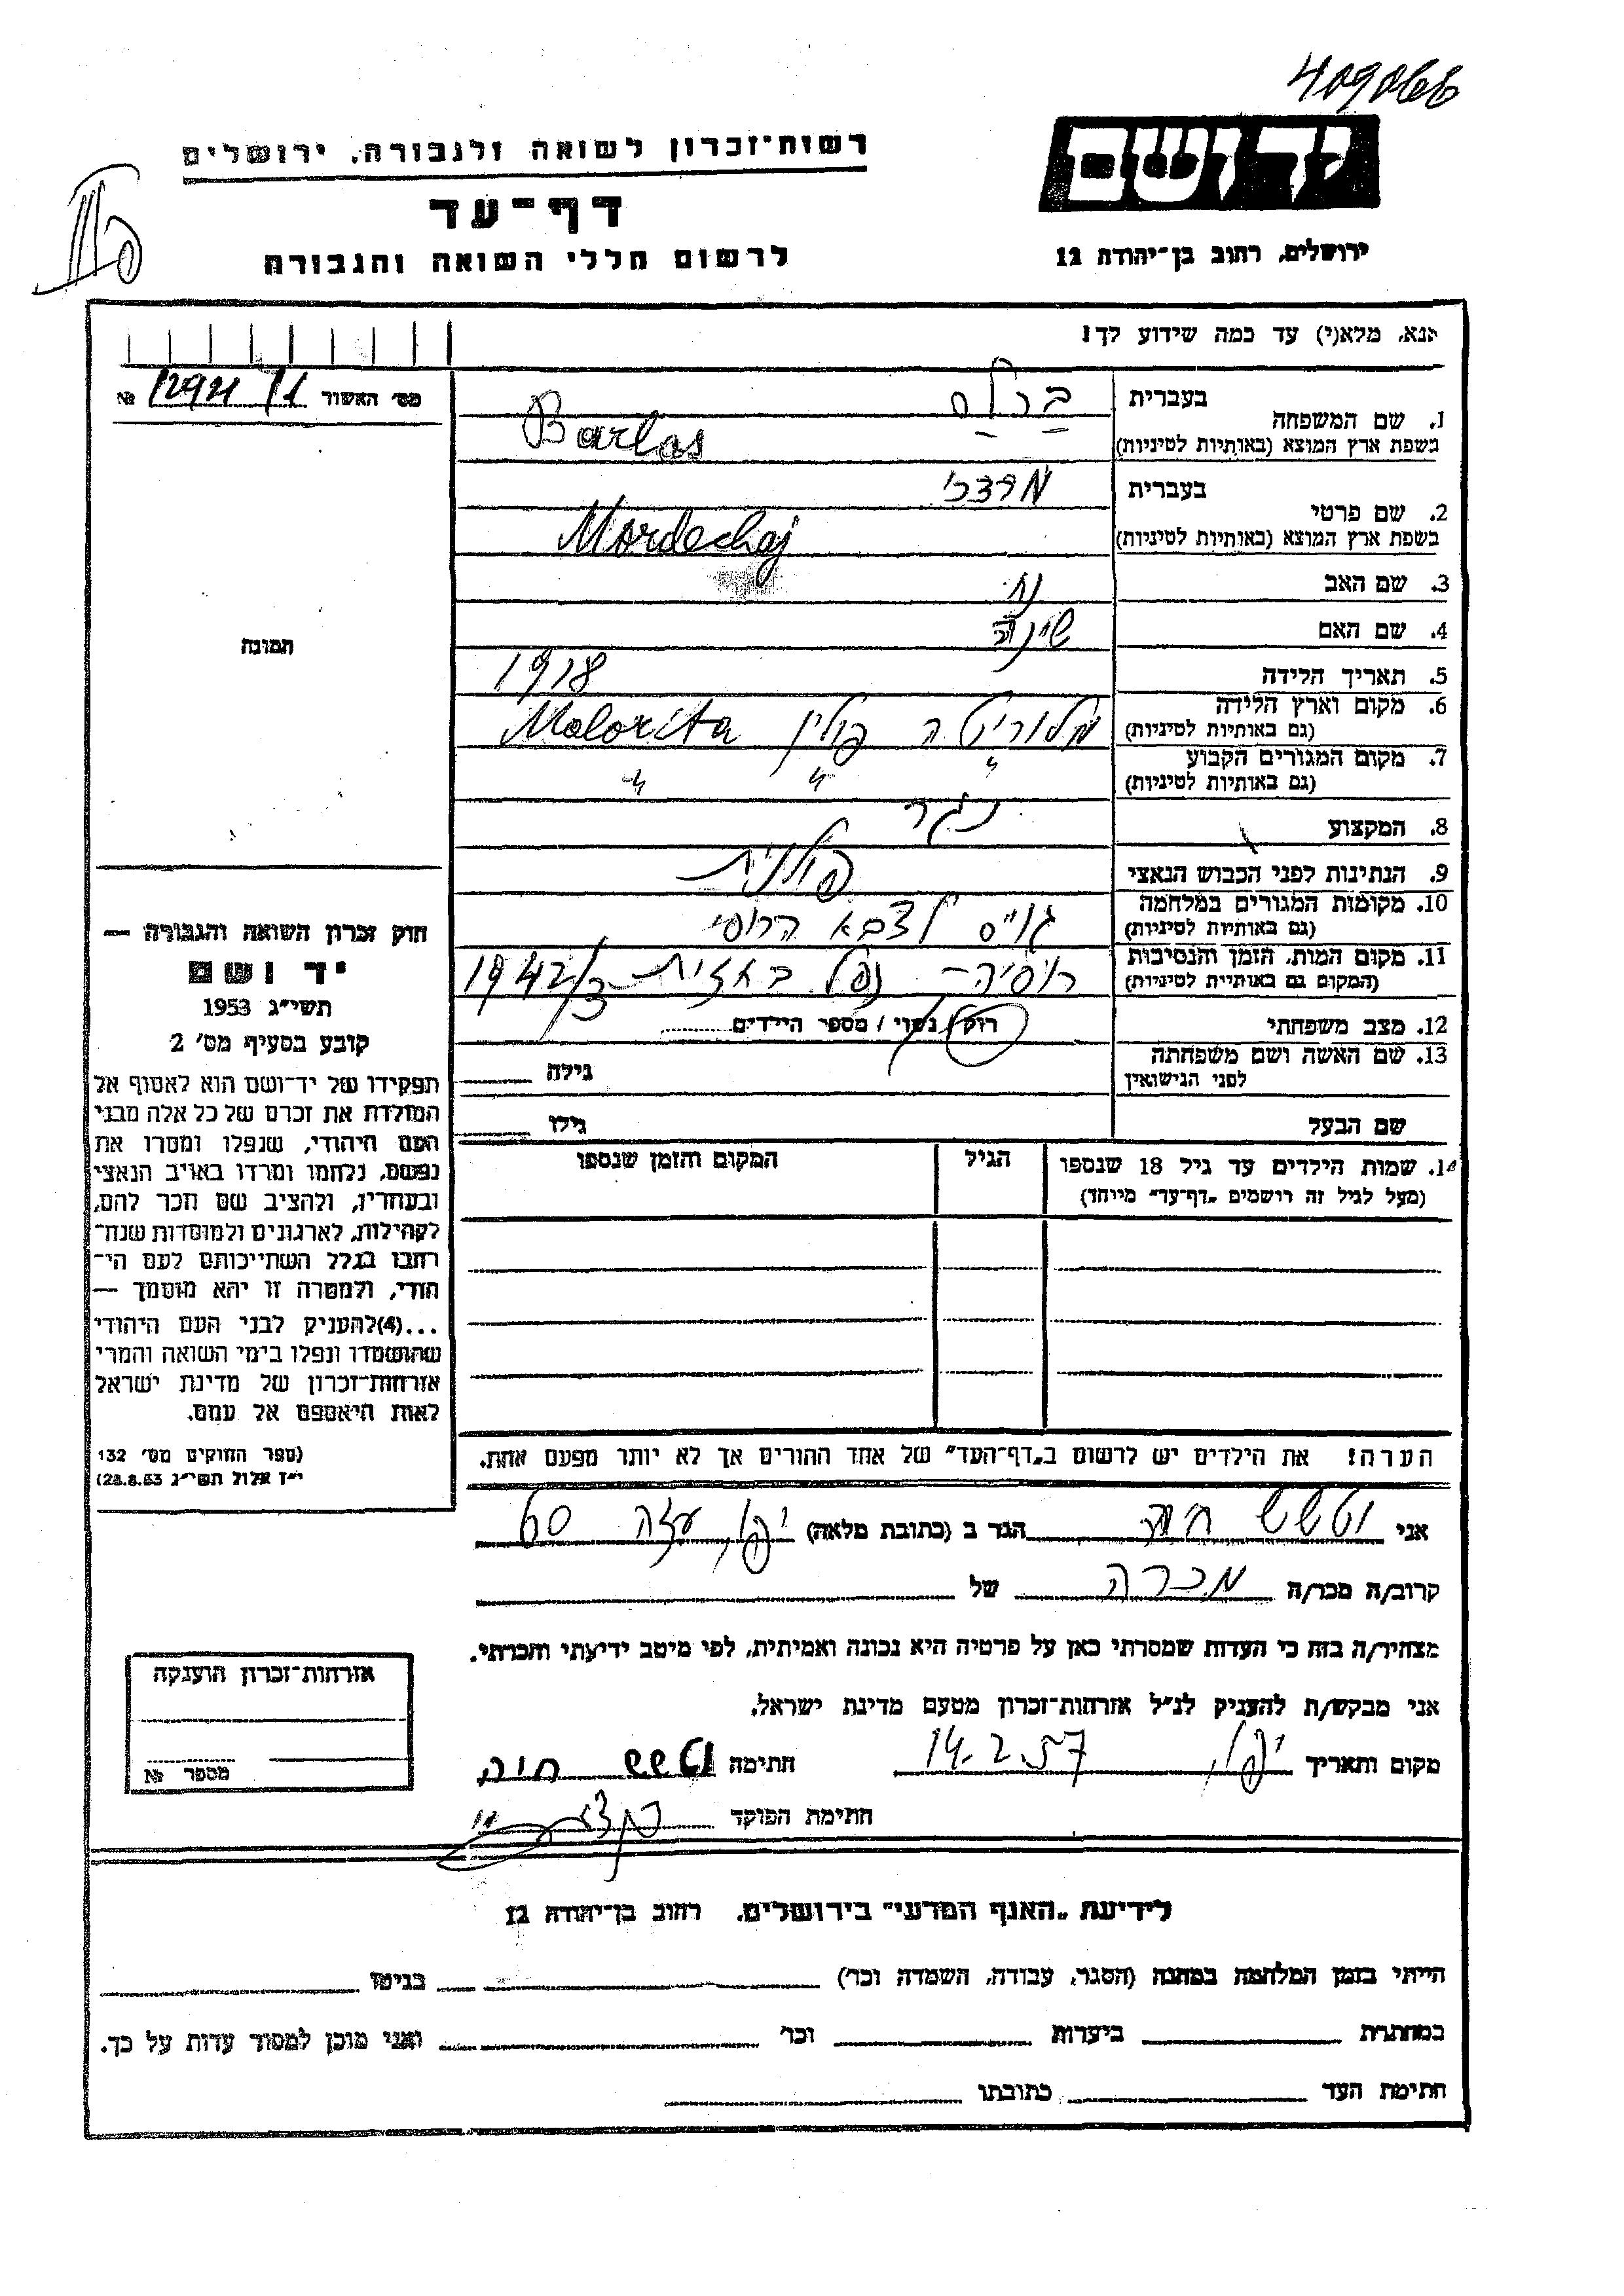 409066
רשות־זכרון לשואה ולגבורה, ירושלים
יד ושם
דף־עד
לרשום חללי השואה והגבורה
ירושלים, רחוב בן־יהודה 12
אנא, מלא(י) עד כמה שידוע לך!
מס׳ האשור 12921/1 №
1. שם המשפחה
בעברית ברלס
בשפת ארץ המוצא (באותיות לטיניות) Barlas
2. שם פרטי
בעברית מרדכי
בשפת ארץ המוצא (באותיות לטיניות) Mordechaj
3. שם האב נח
4. שם האם שינה
5. תאריך הלידה 1918
6. מקום וארץ הלידה מלוריטה פולין Malorita
(גם באותיות לטיניות)
7. מקום המגורים הקבוע " " "
(גם באותיות לטיניות)
8. המקצוע נגר
9. הנתינות לפני הכבוש הנאצי פולנית
10. מקומות המגורים במלחמה גויס לצבא הרוסי
(גם באותיות לטיניות)
11. מקום המות, הזמן והנסיבות רוסיה – נפל בחזית 1942/3
(המקום גם באותיית לטיניות)
12. מצב משפחתי רוק / נשוי / מספר הילדים
13. שם האשה ושם משפחתה גילה
לפני הנישואין
שם הבעל גילו
14. שמות הילדים עד גיל 18 שנספו הגיל המקום והזמן שנספו
(מעל לגיל זה רושמים „דף־עד” מיוחד)
תמונה
חוק זכרון השואה והגבורה —
יד ושם
תשי״ג 1953
קובע בסעיף מס׳ 2
תפקידו של יד־ושם הוא לאסוף אל
המולדת את זכרם של כל אלה מבני
העם היהודי, שנפלו ומסרו את
נפשם, נלחמו ומרדו באויב הנאצי
ובעוזריו, ולהציב שם וזכר להם,
לקהילות, לארגונים ולמוסדות שנח־
רבו בגלל השתייכותם לעם הי־
הודי, ולמטרה זו יהא מוסמך —
...(4)להעניק לבני העם היהודי
שהושמדו ונפלו בימי השואה והמרי
אזרחות־זכרון של מדינת ישראל
לאות היאספם אל עמם.
(ספר החוקים מס׳ 132
י״ז אלול תשי״ג 28.8.53)
הערה! את הילדים יש לרשום ב„דף־העד” של אחד ההורים אך לא יותר מפעם אחת.
אני וטשש חיה הגר ב (כתובת מלאה) יפו, עזה 60
קרוב/ה מכר/ה מכרה של
מצהיר/ה בזה כי העדות שמסרתי כאן על פרטיה היא נכונה ואמיתית, לפי מיטב ידיעתי והכרתי.
אני מבקש/ת להעניק לנ״ל אזרחות־זכרון מטעם מדינת ישראל.
מקום ותאריך יפו, 14.2.57 חתימה וטשש חיה
חתימת הפוקד
אזרחות־זכרון הוענקה
מספר №
לידיעת „האגף המדעי” בירושלים, רחוב בן־יהודה 12
הייתי בזמן המלחמה במחנה (הסגר, עבודה, השמדה וכר׳) בגיטו
במחתרת ביערות וכר׳ ואני מוכן למסור עדות על כך.
חתימת העד כתובתו